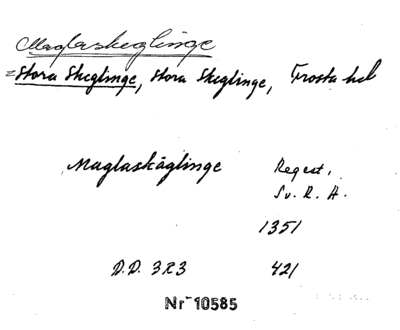 Maglaskeglinge
= Stora Skeglinge, Stora Skeglinge, Frosta hd
Maglaskäglinge Regest.
Sv. R. A.
1351
D.D. 3R3 421
Nr 10585